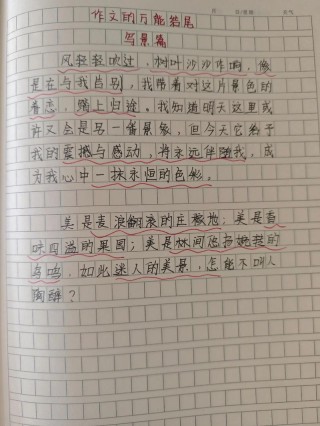 作文的万能结尾
写景篇
风轻轻吹过，树叶沙沙作响，像
是在与我告别，我带着对这片景色的
眷恋，踏上归途。我知道明天这里或
许又会是另一番景象，但今天它给予
我的震撼与感动，将永远伴随我，成
为我心中一抹永恒的色彩。
美是麦浪翻滚的庄稼地；美是香
味四溢的果园；美是林间悠扬婉转的
鸟鸣，如此迷人的美景，怎能不叫人
陶醉？